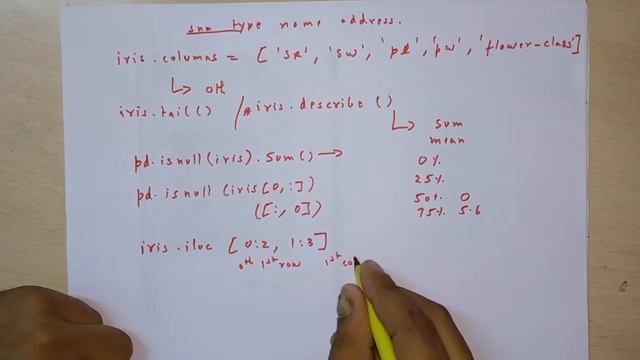 sno type name address.
iris.columns = [ 'sl', 'sw', 'pl', 'pw', 'flower-class']
0th
iris.tail() / iris.describe()
sum
mean
pd.isnull(iris).sum() →
0%
pd.isnull (iris[0,:])
25%
([:, 0])
50% 0
75% 5.6
iris.iloc [0:2, 1:3]
0th 1st row 1st co